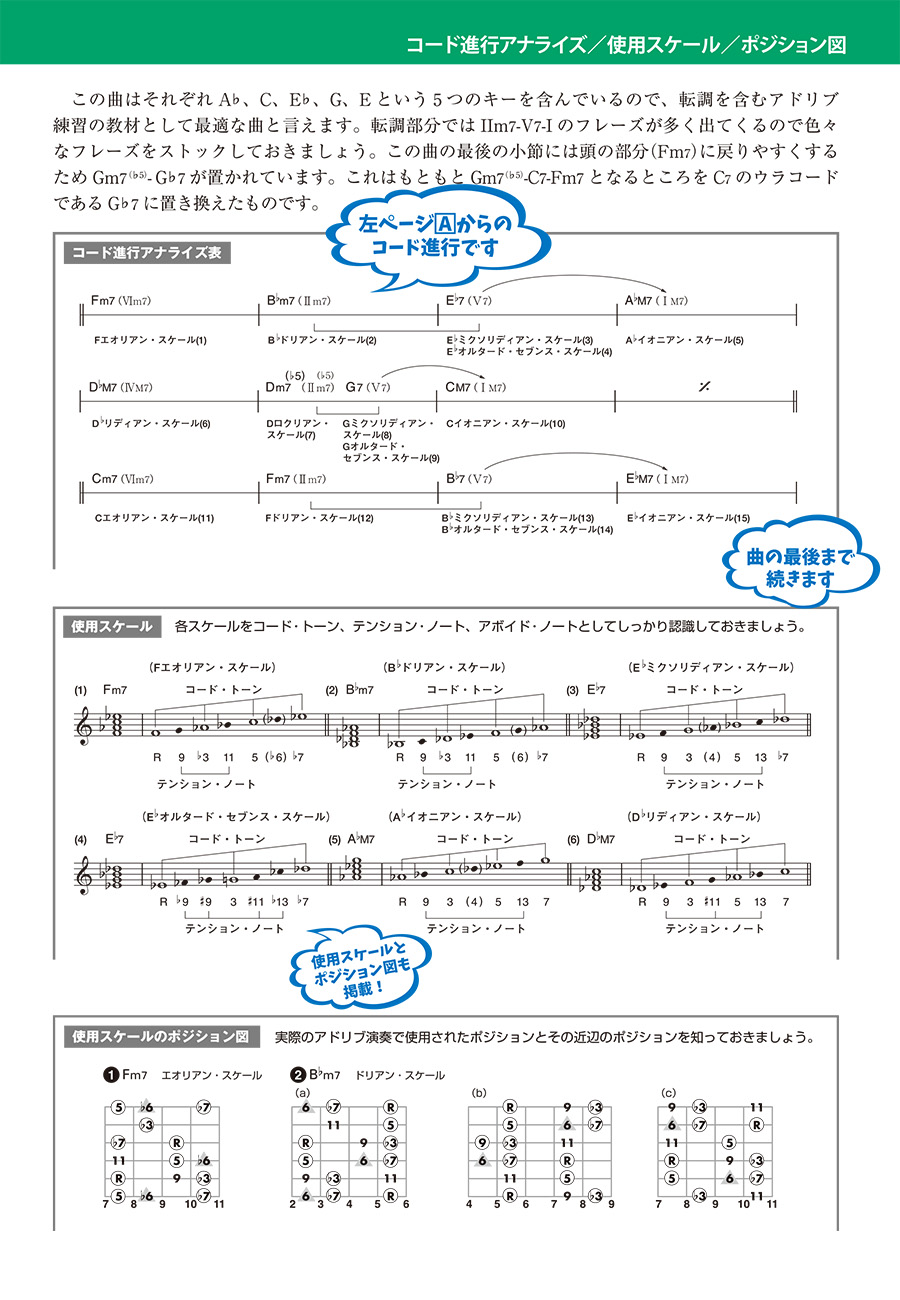 コード進行アナライズ／使用スケール／ポジション図
この曲はそれぞれ A♭、C、E♭、G、E という５つのキーを含んでいるので、転調を含むアドリブ
練習の教材として最適な曲と言えます。転調部分では IIm7-V7-I のフレーズが多く出てくるので色々
なフレーズをストックしておきましょう。この曲の最後の小節には頭の部分（Fm7）に戻りやすくする
ため Gm7(♭5)- G♭7 が置かれています。これはもともと Gm7(♭5)-C7-Fm7 となるところを C7 のウラコード
である G♭7 に置き換えたものです。
左ページAからの
コード進行です
コード進行アナライズ表
Fm7 (VIm7) B♭m7 (IIm7) E♭7 (V7) A♭M7 (I M7)
Fエオリアン・スケール(1) B♭ドリアン・スケール(2) E♭ミクソリディアン・スケール(3) A♭イオニアン・スケール(5)
E♭オルタード・セブンス・スケール(4)
(♭5) (♭5)
D♭M7 (IVM7) Dm7 (IIm7) G7 (V7) CM7 (I M7) ٪
D♭リディアン・スケール(6) Dロクリアン・ Gミクソリディアン・ Cイオニアン・スケール(10)
スケール(7) スケール(8)
Gオルタード・
セブンス・スケール(9)
Cm7 (VIm7) Fm7 (IIm7) B♭7 (V7) E♭M7 (I M7)
Cエオリアン・スケール(11) Fドリアン・スケール(12) B♭ミクソリディアン・スケール(13) E♭イオニアン・スケール(15)
B♭オルタード・セブンス・スケール(14)
曲の最後まで
続きます
使用スケール 各スケールをコード・トーン、テンション・ノート、アボイド・ノートとしてしっかり認識しておきましょう。
（Fエオリアン・スケール） （B♭ドリアン・スケール） （E♭ミクソリディアン・スケール）
(1) Fm7 コード・トーン (2) B♭m7 コード・トーン (3) E♭7 コード・トーン
R 9 ♭3 11 5 (♭6) ♭7 R 9 ♭3 11 5 (6) ♭7 R 9 3 (4) 5 13 ♭7
テンション・ノート テンション・ノート テンション・ノート
（E♭オルタード・セブンス・スケール） （A♭イオニアン・スケール） （D♭リディアン・スケール）
(4) E♭7 コード・トーン (5) A♭M7 コード・トーン (6) D♭M7 コード・トーン
R ♭9 ♯9 3 ♯11 ♭13 ♭7 R 9 3 (4) 5 13 7 R 9 3 ♯11 5 13 7
テンション・ノート テンション・ノート テンション・ノート
使用スケールと
ポジション図も
掲載！
使用スケールのポジション図 実際のアドリブ演奏で使用されたポジションとその近辺のポジションを知っておきましょう。
❶ Fm7 エオリアン・スケール ❷ B♭m7 ドリアン・スケール
(a) (b) (c)
5 ♭6 ♭7 6 ♭7 R R 9 ♭3 9 ♭3 11
♭3 11 5 5 6 ♭7 6 ♭7 R
♭7 R R 9 ♭3 9 ♭3 11 11 5
11 5 ♭6 5 6 ♭7 6 ♭7 R R 9 ♭3
R 9 ♭3 9 ♭3 11 11 5 5 6 ♭7
5 ♭6 ♭7 6 ♭7 R R 9 ♭3 ♭3 11
7 8 9 10 11 2 3 4 5 6 4 5 6 7 8 9 7 8 9 10 11